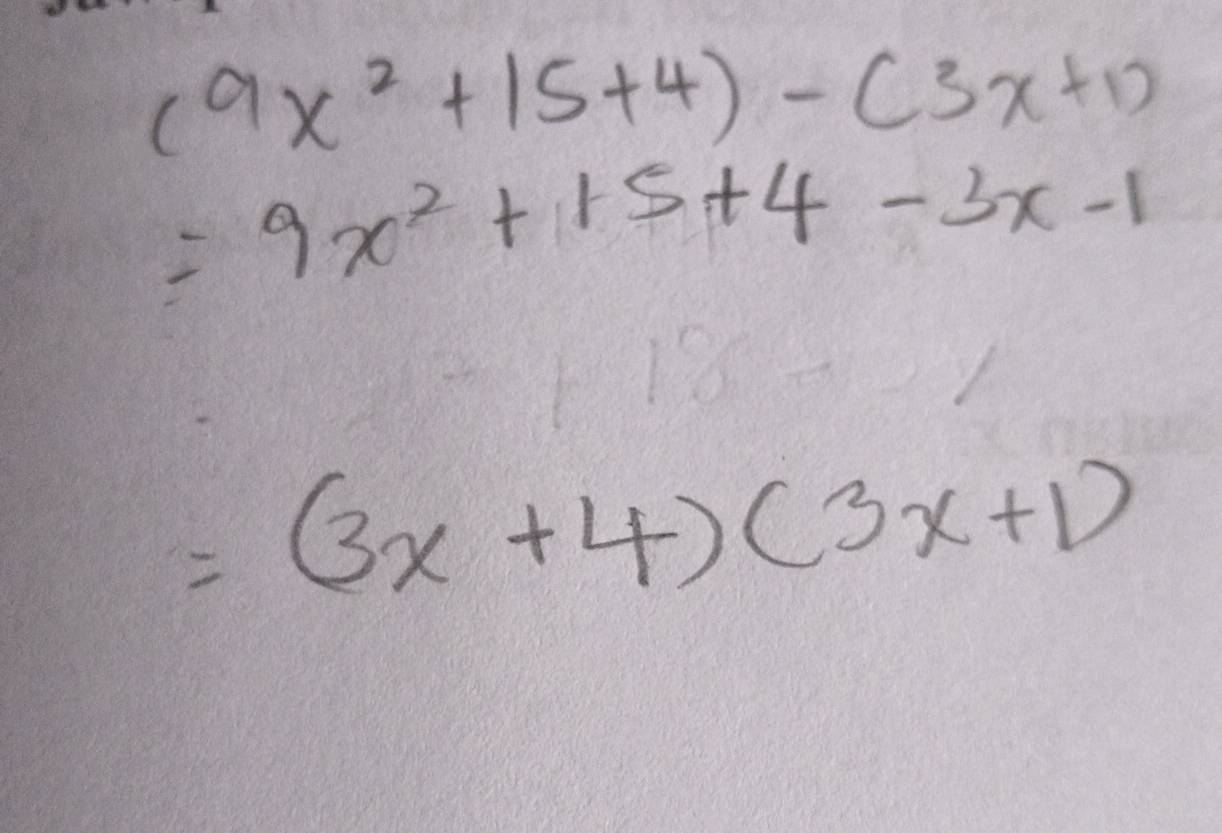 (9x² + 15 + 4) - (3x + 1)
= 9x² + 15 + 4 - 3x - 1
= (3x + 4)(3x + 1)